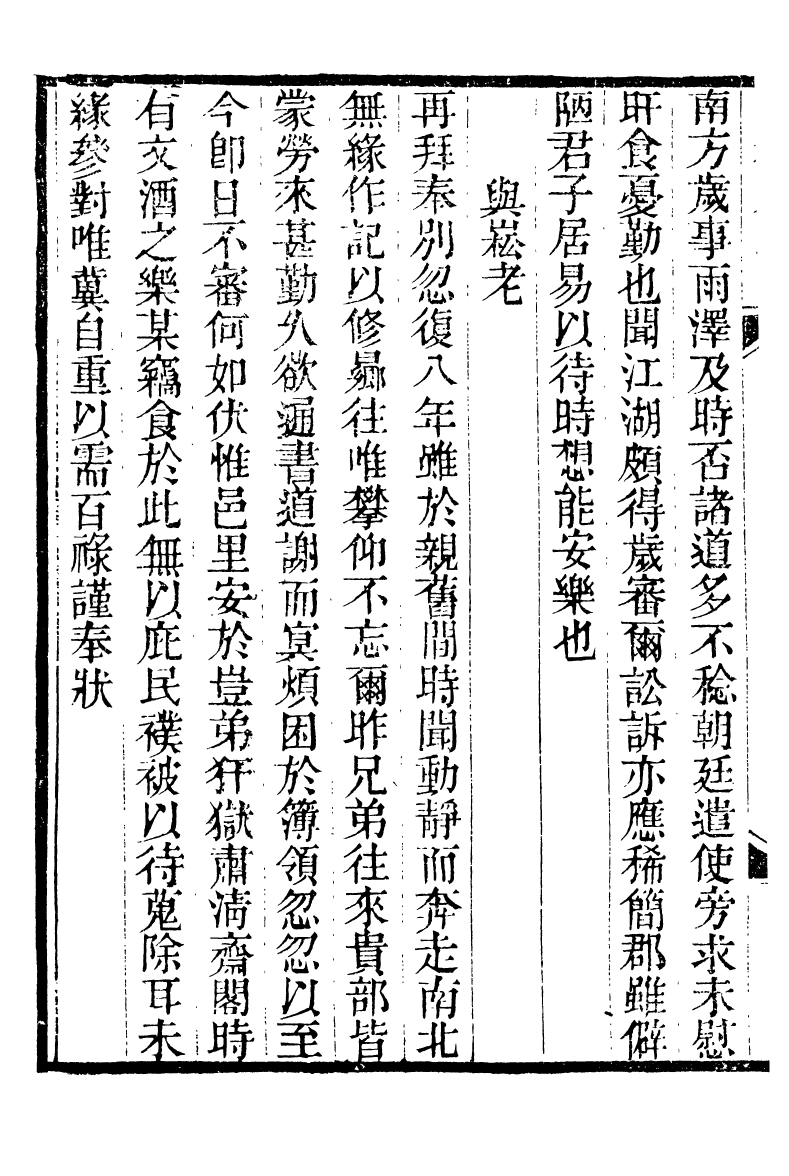 南方歲事雨澤及時否諸道多不稔朝廷遣使旁求未慰
旰食憂勤也聞江湖頗得歲審爾訟訴亦應稀簡郡雖僻
陋君子居易以待時想能安樂也
與崧老
再拜奉別忽復八年雖於親舊間時聞動靜而奔走南北
無緣作記以修嚮往唯攀仰不忘爾昨兄弟往來貴部皆
蒙勞來甚勤久欲通書道謝而冥煩困於簿領忽忽以至
今卽日不審何如伏惟邑里安於豈弟犴獄肅清齋閣時
有文酒之樂某竊食於此無以庇民襆被以待蒐除耳未
緣參對唯冀自重以需百祿謹奉狀